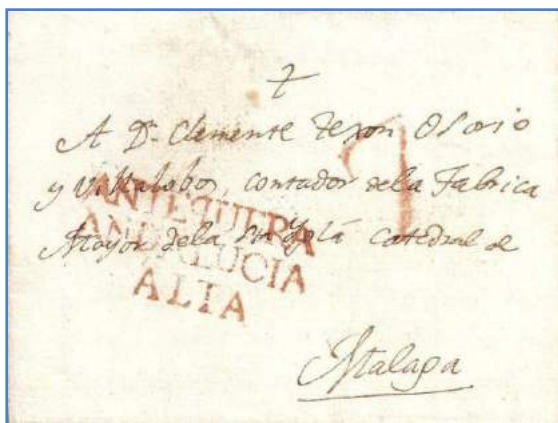 A Dn. Clemente Texon Osorio
y Villalobos, contador dela Fabrica
Mayor dela Sta Yglã catedral de
Malaga
7
ANTEQUERA
ANDALUCIA
ALTA